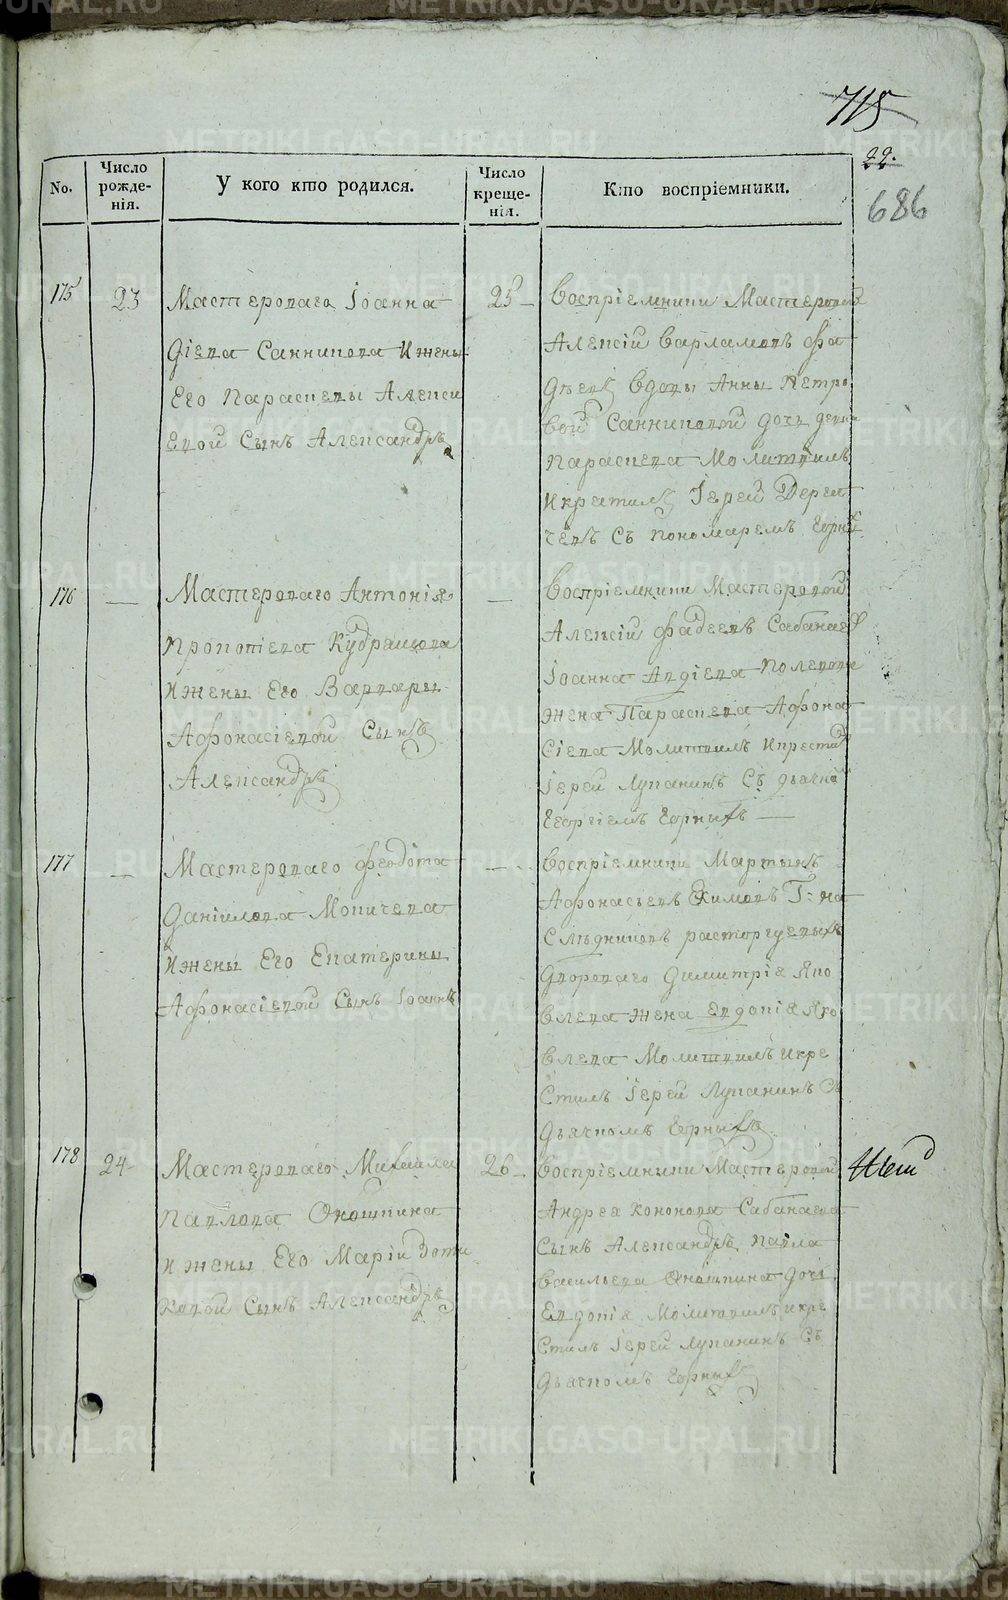 715
22.
686
No.
Число рожде-
нія.
У кого кто родился.
Число креще-
нія.
Кто воспріемники.
175
23
Мастероваго Іоанна
Діева Санникова и жены
Его Параскевы Алекси
евой Сынъ Александръ
25
Воспріемники Мастеровой
Алексій Варламовъ
вдовы Анны Петро
вой Санниковой дочь девка
Параскева Молитвилъ
и крстилъ Іерей
съ пономаремъ
176
—
Мастероваго Антонія
Прокопіева Кудрявцова
и жены Его Варвары
Афонасіевой Сынъ
Александръ
—
Воспріемники Мастеровой
Алексій Фадеевъ Сабанаев
Іоанна Авдіева
жена Параскева Афона
сіева Молитвилъ и крести
Іерей Лупанинъ Съ дьячко
Георгіемъ Горныхъ
177
—
Мастероваго Феодота
Даніилова Мокичева
и жены Его Екатерины
Афонасіевой Сынъ Іоаннъ
—
Воспріемники Мартынъ
Афонасьевъ Екимовъ Г: на
следниковъ расторгуевыхъ
Двороваго Димитрія Яко
влева жена Евдокія Яко
влева Молитвилъ и кре
стилъ Іерей Лупанинъ Съ
дьячкомъ Горныхъ
178
24
Мастероваго Михайла
Павлова Оношкина
и жены Его Маріи
Сынъ Александръ
26
Воспріемники Мастеровой
Андрея Кононова Сабанаева
Сынъ Александръ, Павла
Васильева Оношкина дочь
Евдокія Молитвилъ и кре
стилъ Іерей Лупанинъ Съ
дьячкомъ Горныхъ
METRIKI.GASO-URAL.RU